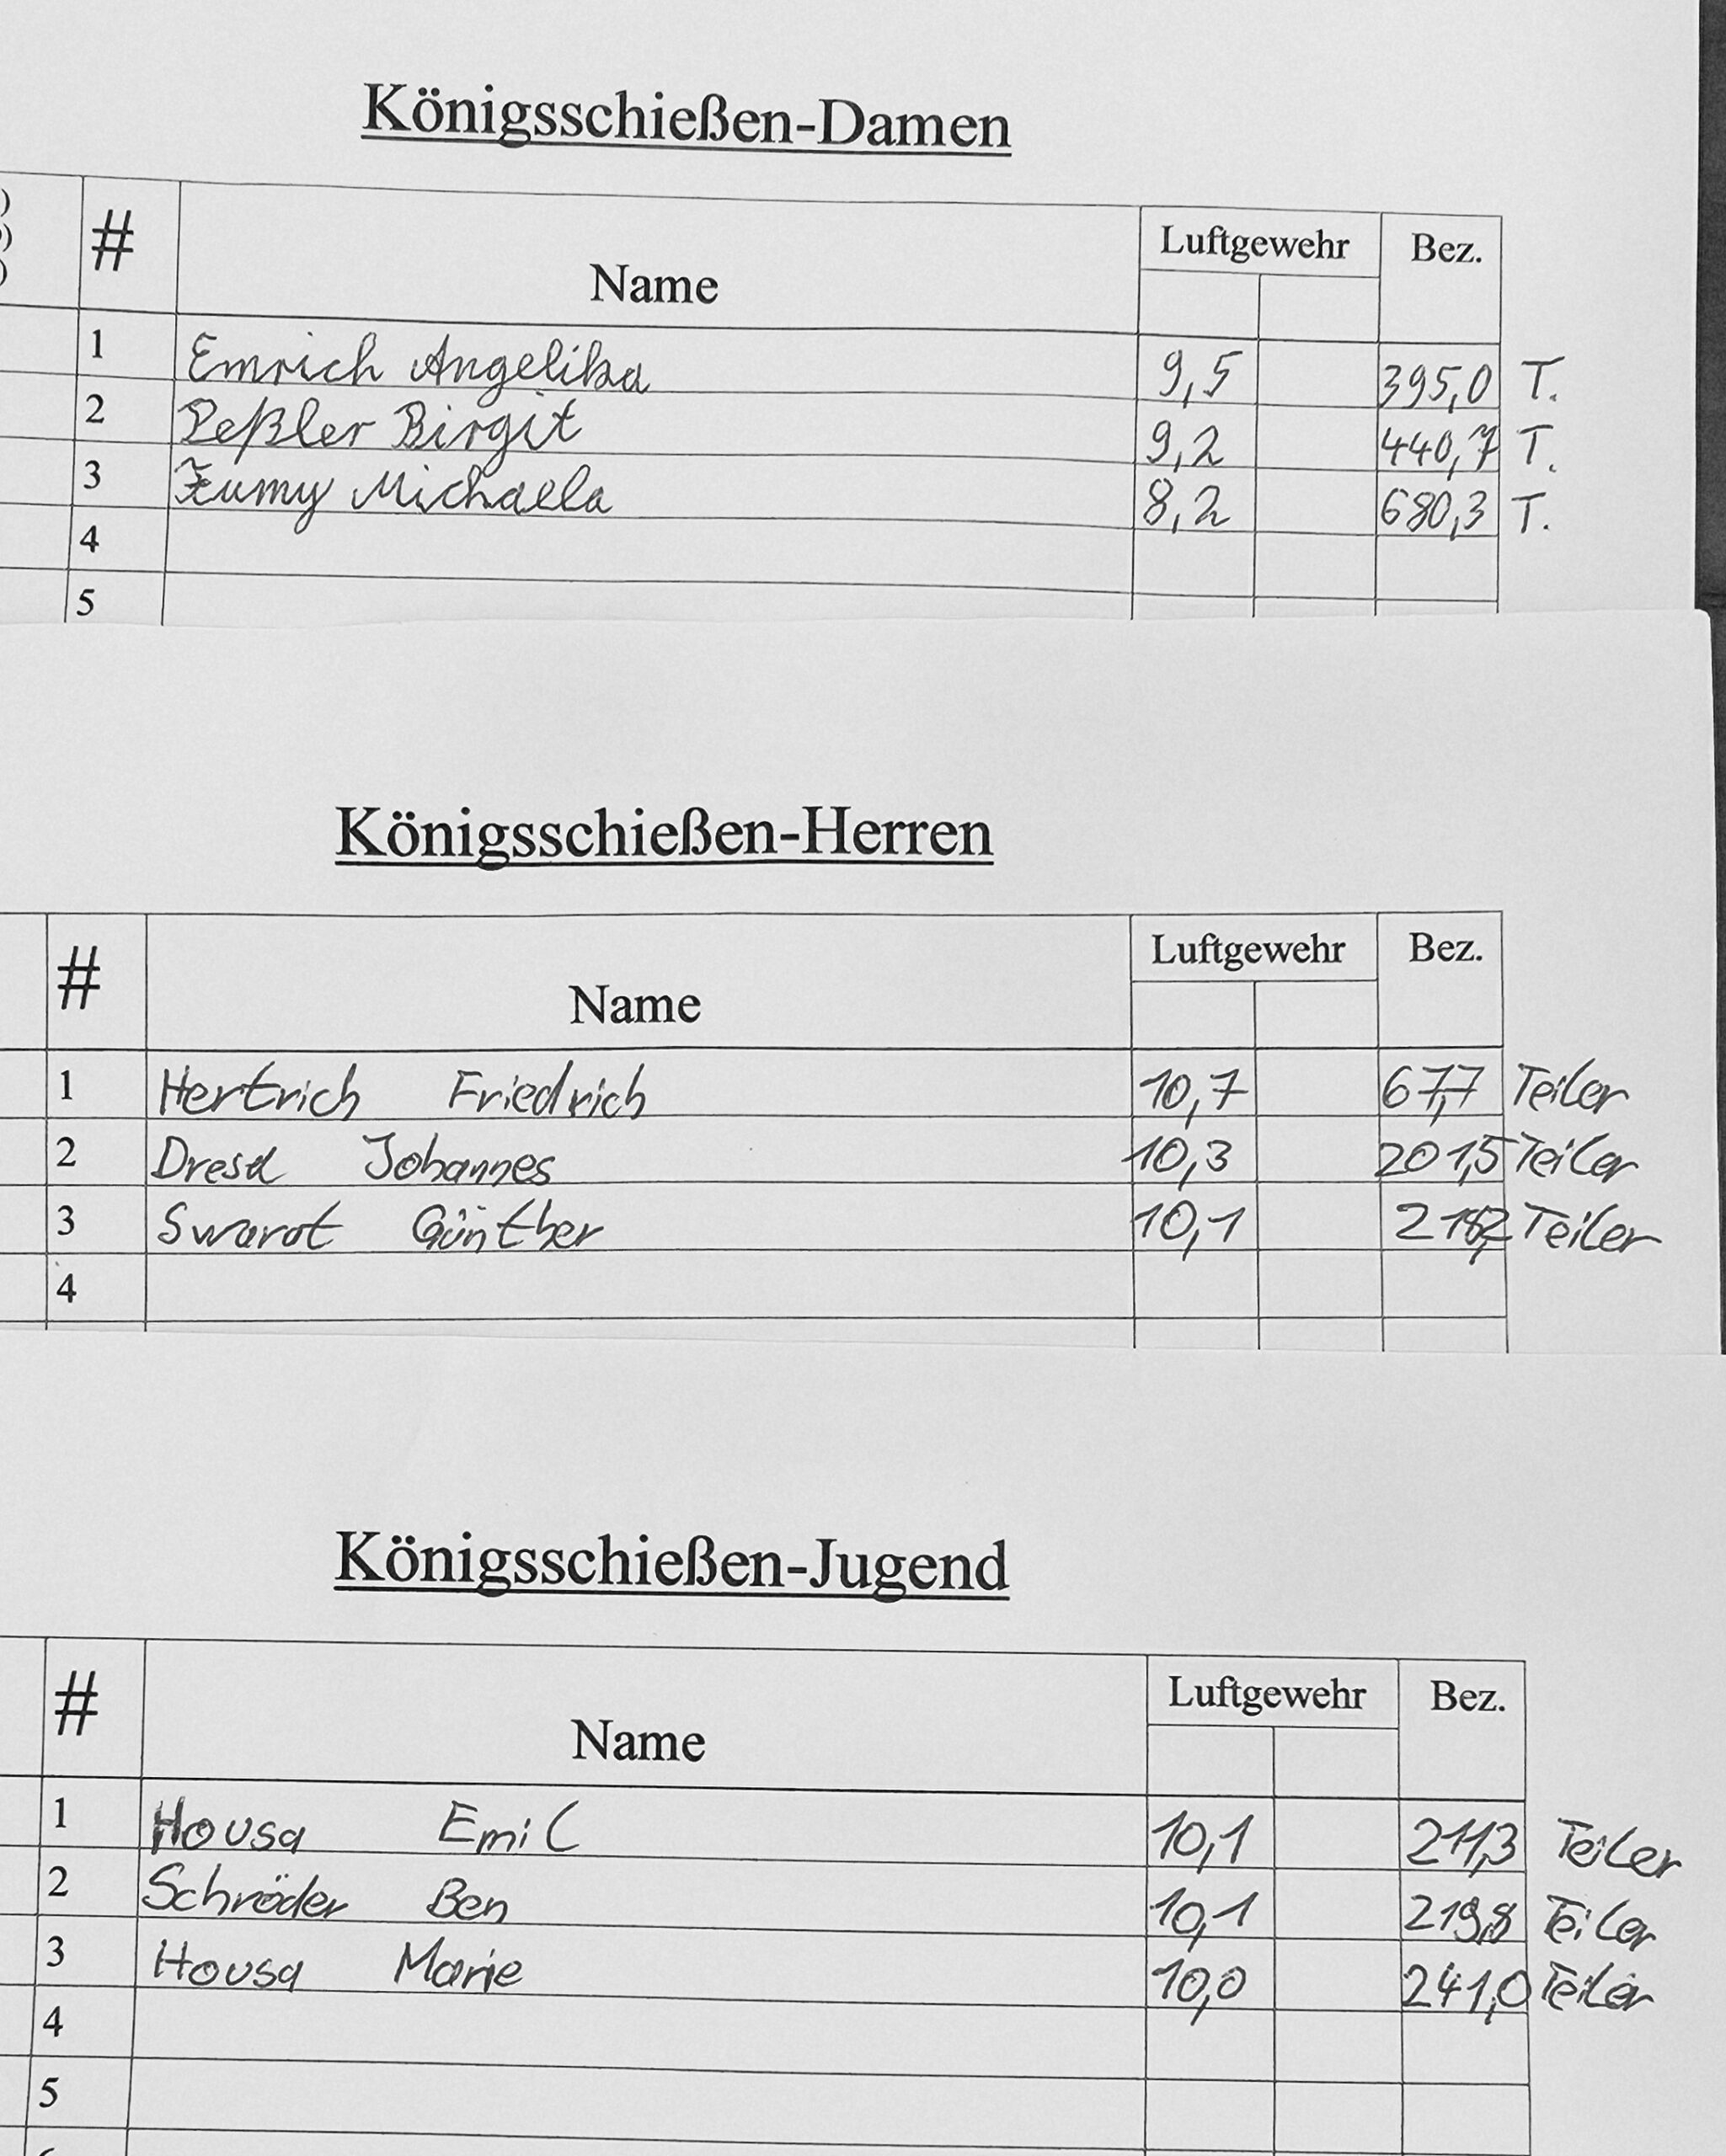 Königsschießen-Damen
# Name Luftgewehr Bez.
1 Emrich Angelika 9,5 395,0 T.
2 Peßler Birgit 9,2 440,7 T.
3 Michaela 8,2 680,3 T.
4
5
Königsschießen-Herren
# Name Luftgewehr Bez.
1 Hertrich Friedrich 10,7 67,7 Teiler
2 Johannes 10,3 201,5 Teiler
3 Swarot Günther 10,1 218,2 Teiler
4
Königsschießen-Jugend
# Name Luftgewehr Bez.
1 Housa Emil 10,1 211,3 Teiler
2 Schröder Ben 10,1 219,8 Teiler
3 Housa Marie 10,0 241,0 Teiler
4
5